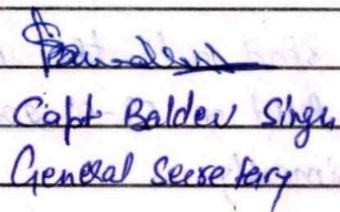 Capt Baldev Singh
General Secretary